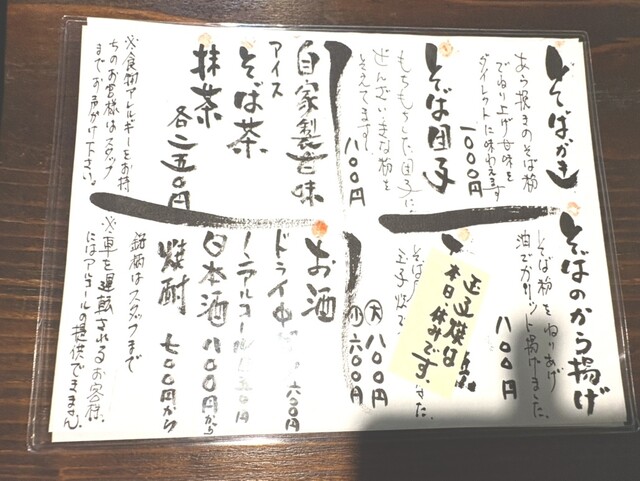 そばがき
あら挽きのそば粉
でねり上げ甘味を
ダイレクトに味わえます
一〇〇〇円
そば団子
もちもちした団子に
ぜんざいときな粉を
そえてます。
八〇〇円
自家製甘味
アイス
そば茶
抹茶
各二五〇円
※食物アレルギーをお持
ちのお客様はスタッフ
までお声がけ下さい。
そばのから揚げ
そば粉をねりあげ
油でカリッと揚げました。
八〇〇円
玉子焼は
本日休みです。
そば
玉子焼で
した。
大 八〇〇円
小 六〇〇円
お酒
ドライ中
六〇〇円
ノンアルコール
五〇円
日本酒 八〇〇円から
焼酎 七〇〇円から
銘柄はスタッフまで
※車を運転されるお客様
にはアルコールの提供できません。